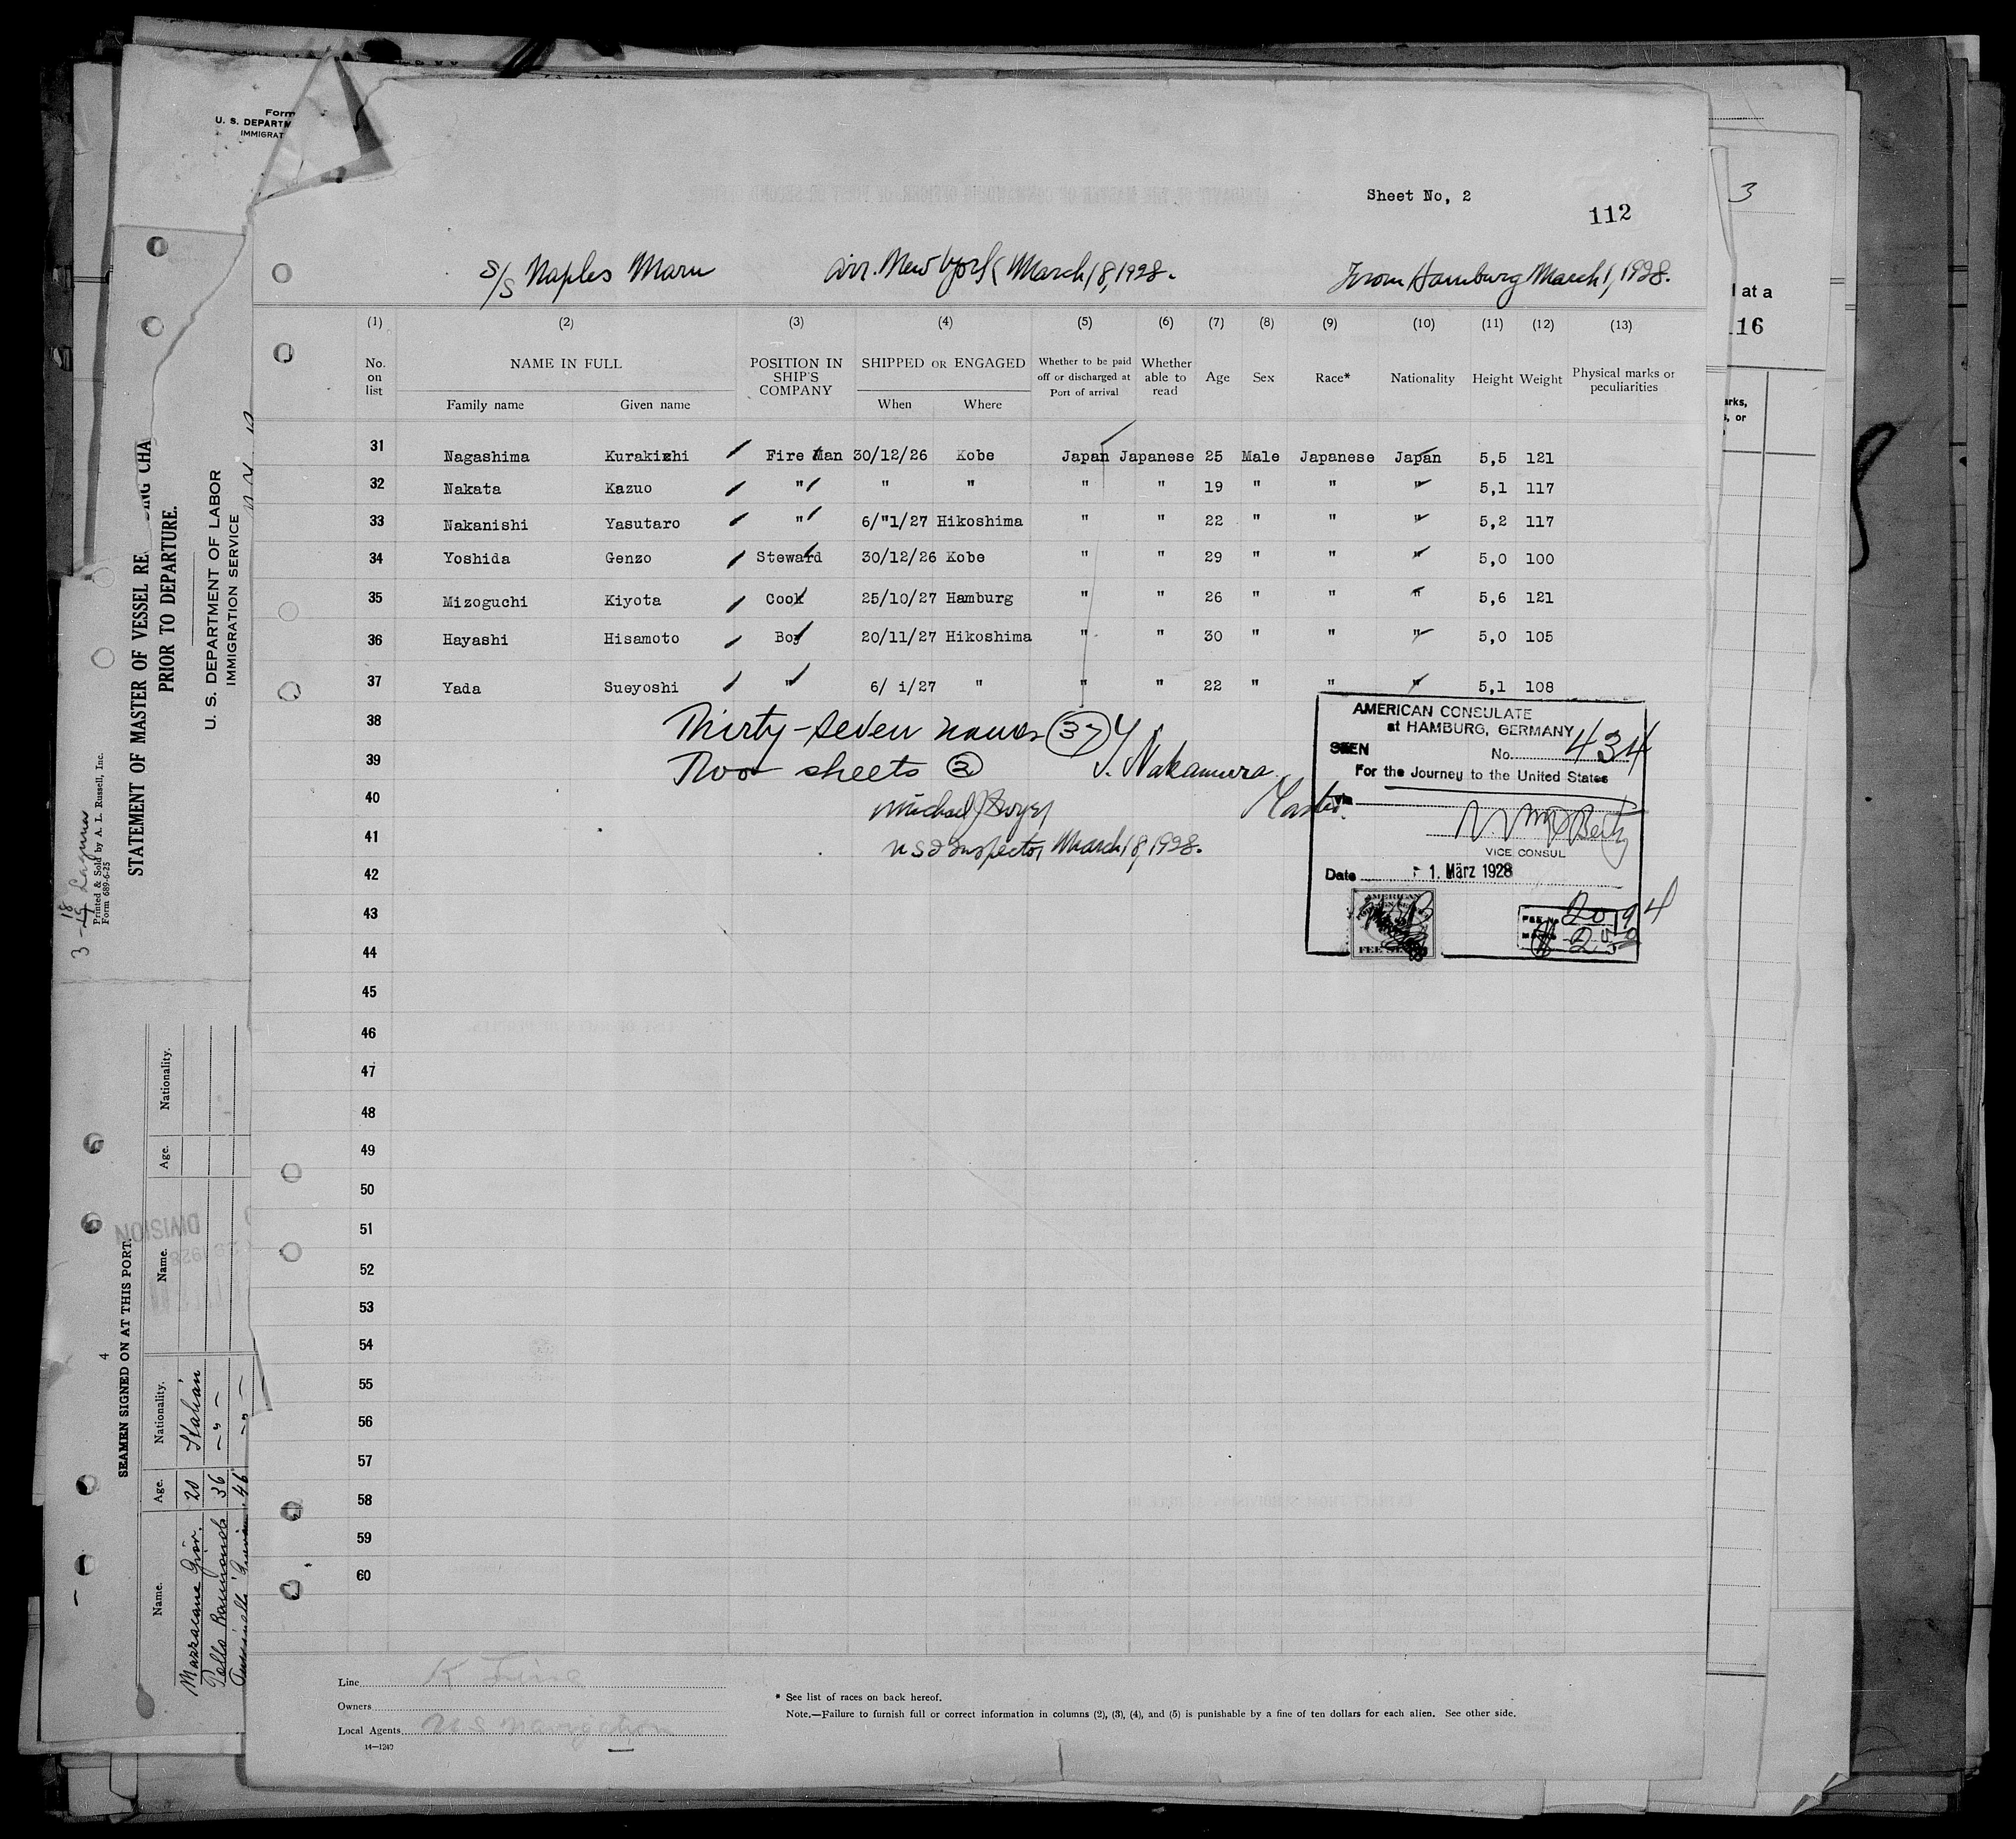 Form
U. S. DEPARTM
IMMIGRAT
Sheet No, 2
112
S/S Naples Maru arr. New York March 18, 1928. From Hamburg March 1, 1928.
(1) (2) (3) (4) (5) (6) (7) (8) (9) (10) (11) (12) (13)
No. on list NAME IN FULL POSITION IN SHIP'S COMPANY SHIPPED OR ENGAGED Whether to be paid off or discharged at Port of arrival Whether able to read Age Sex Race* Nationality Height Weight Physical marks or peculiarities
Family name Given name When Where
31 Nagashima Kurakichi Fire Man 30/12/26 Kobe Japan Japanese 25 Male Japanese Japan 5,5 121
32 Nakata Kazuo " " " " " 19 " " " 5,1 117
33 Nakanishi Yasutaro " 6/"1/27 Hikoshima " " 22 " " " 5,2 117
34 Yoshida Genzo Steward 30/12/26 Kobe " " 29 " " " 5,0 100
35 Mizoguchi Kiyota Cook 25/10/27 Hamburg " " 26 " " " 5,6 121
36 Hayashi Hisamoto Boy 20/11/27 Hikoshima " " 30 " " " 5,0 105
37 Yada Sueyoshi " 6/ i/27 " " " 22 " " " 5,1 108
38 Thirty-seven names (37)
39 Two sheets (2)
Nakamura
Master.
40 Michael J
41 U S I Inspector March 18, 1928.
42
43
44
45
46
47
48
49
50
51
52
53
54
55
56
57
58
59
60
AMERICAN CONSULATE
at HAMBURG, GERMANY
SEEN
No. 434
For the Journey to the United States
via
VICE CONSUL
Date 1. März 1928
AMERICAN
FEE No. 2094
Line K Line
Owners
Local Agents U S Navigation
14—1240
* See list of races on back hereof.
Note.—Failure to furnish full or correct information in columns (2), (3), (4), and (5) is punishable by a fine of ten dollars for each alien. See other side.
STATEMENT OF MASTER OF VESSEL RE
ING CHA
PRIOR TO DEPARTURE.
U. S. DEPARTMENT OF LABOR
IMMIGRATION SERVICE
3 - 18 Laguna
Printed & Sold by A. L. Russell, Inc.
Form 689-6-25
4
SEAMEN SIGNED ON AT THIS PORT.
Name. Age. Nationality. Name. Age. Nationality.
20 Italian
36 - " -
46 - " -
DIVISION
3
l at a
16
arks,
s, or